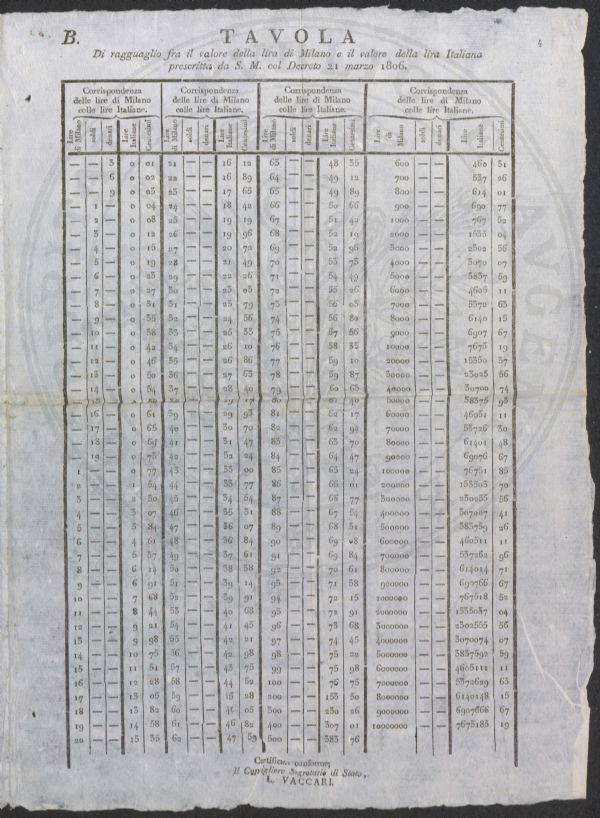 B.
TAVOLA
4
Di ragguaglio fra il valore della lira di Milano e il valore della lira Italiana
prescritta da S. M. col Decreto 21 marzo 1806.
Corrispondenza Corrispondenza Corrispondenza Corrispondenza
delle lire di Milano delle lire di Milano delle lire di Milano delle lire di Milano
colle lire Italiane. colle lire Italiane. colle lire Italiane. colle lire Italiane.
Lire di Milano soldi denari Lire Italiane Centesimi Lire di Milano soldi denari Lire Italiane Centesimi Lire di Milano soldi denari Lire Italiane Centesimi Lire di Milano soldi denari Lire Italiane Centesimi
— — 3 0 01 21 — — 16 12 63 — — 48 35 600 — — 460 51
— — 6 0 02 22 — — 16 89 64 — — 49 12 700 — — 537 26
— — 9 0 03 23 — — 17 65 65 — — 49 89 800 — — 614 01
— 1 — 0 04 24 — — 18 42 66 — — 50 66 900 — — 690 77
— 2 — 0 08 25 — — 19 19 67 — — 51 42 1000 — — 767 52
— 3 — 0 12 26 — — 19 96 68 — — 52 19 2000 — — 1535 04
— 4 — 0 15 27 — — 20 72 69 — — 52 96 3000 — — 2302 56
— 5 — 0 19 28 — — 21 49 70 — — 53 73 4000 — — 3070 07
— 6 — 0 23 29 — — 22 26 71 — — 54 49 5000 — — 3837 59
— 7 — 0 27 30 — — 23 03 72 — — 55 26 6000 — — 4605 11
— 8 — 0 31 31 — — 23 79 73 — — 56 03 7000 — — 5372 63
— 9 — 0 35 32 — — 24 56 74 — — 56 80 8000 — — 6140 15
— 10 — 0 38 33 — — 25 33 75 — — 57 56 9000 — — 6907 67
— 11 — 0 42 34 — — 26 10 76 — — 58 33 10000 — — 7675 19
— 12 — 0 46 35 — — 26 86 77 — — 59 10 20000 — — 15350 37
— 13 — 0 50 36 — — 27 63 78 — — 59 87 30000 — — 23025 56
— 14 — 0 54 37 — — 28 40 79 — — 60 63 40000 — — 30700 74
— 15 — 0 58 38 — — 29 17 80 — — 61 40 50000 — — 38375 93
— 16 — 0 61 39 — — 29 93 81 — — 62 17 60000 — — 46051 11
— 17 — 0 65 40 — — 30 70 82 — — 62 94 70000 — — 53726 30
— 18 — 0 69 41 — — 31 47 83 — — 63 70 80000 — — 61401 48
— 19 — 0 73 42 — — 32 24 84 — — 64 47 90000 — — 69076 67
1 — — 0 77 43 — — 33 00 85 — — 65 24 100000 — — 76751 85
2 — — 1 54 44 — — 33 77 86 — — 66 01 200000 — — 153503 70
3 — — 2 30 45 — — 34 54 87 — — 66 77 300000 — — 230255 56
4 — — 3 07 46 — — 35 31 88 — — 67 54 400000 — — 307007 41
5 — — 3 84 47 — — 36 07 89 — — 68 31 500000 — — 383759 26
6 — — 4 61 48 — — 36 84 90 — — 69 08 600000 — — 460511 11
7 — — 5 37 49 — — 37 61 91 — — 69 84 700000 — — 537262 96
8 — — 6 14 50 — — 38 38 92 — — 70 61 800000 — — 614014 71
9 — — 6 91 51 — — 39 14 93 — — 71 38 900000 — — 690766 67
10 — — 7 68 52 — — 39 91 94 — — 72 15 1000000 — — 767518 52
11 — — 8 44 53 — — 40 68 95 — — 72 91 2000000 — — 1535037 04
12 — — 9 21 54 — — 41 45 96 — — 73 68 3000000 — — 2302555 56
13 — — 9 98 55 — — 42 21 97 — — 74 45 4000000 — — 3070074 07
14 — — 10 75 56 — — 42 98 98 — — 75 22 5000000 — — 3837592 59
15 — — 11 51 57 — — 43 75 99 — — 75 98 6000000 — — 4605111 11
16 — — 12 28 58 — — 44 52 100 — — 76 75 7000000 — — 5372629 63
17 — — 13 05 59 — — 45 28 200 — — 153 50 8000000 — — 6140148 15
18 — — 13 82 60 — — 46 05 300 — — 230 26 9000000 — — 6907666 67
19 — — 14 58 61 — — 46 82 400 — — 307 01 10000000 — — 7675185 19
20 — — 15 35 62 — — 47 59 500 — — 383 76
Certificato conforme,
Il Consigliere Segretario di Stato,
L. VACCARI.